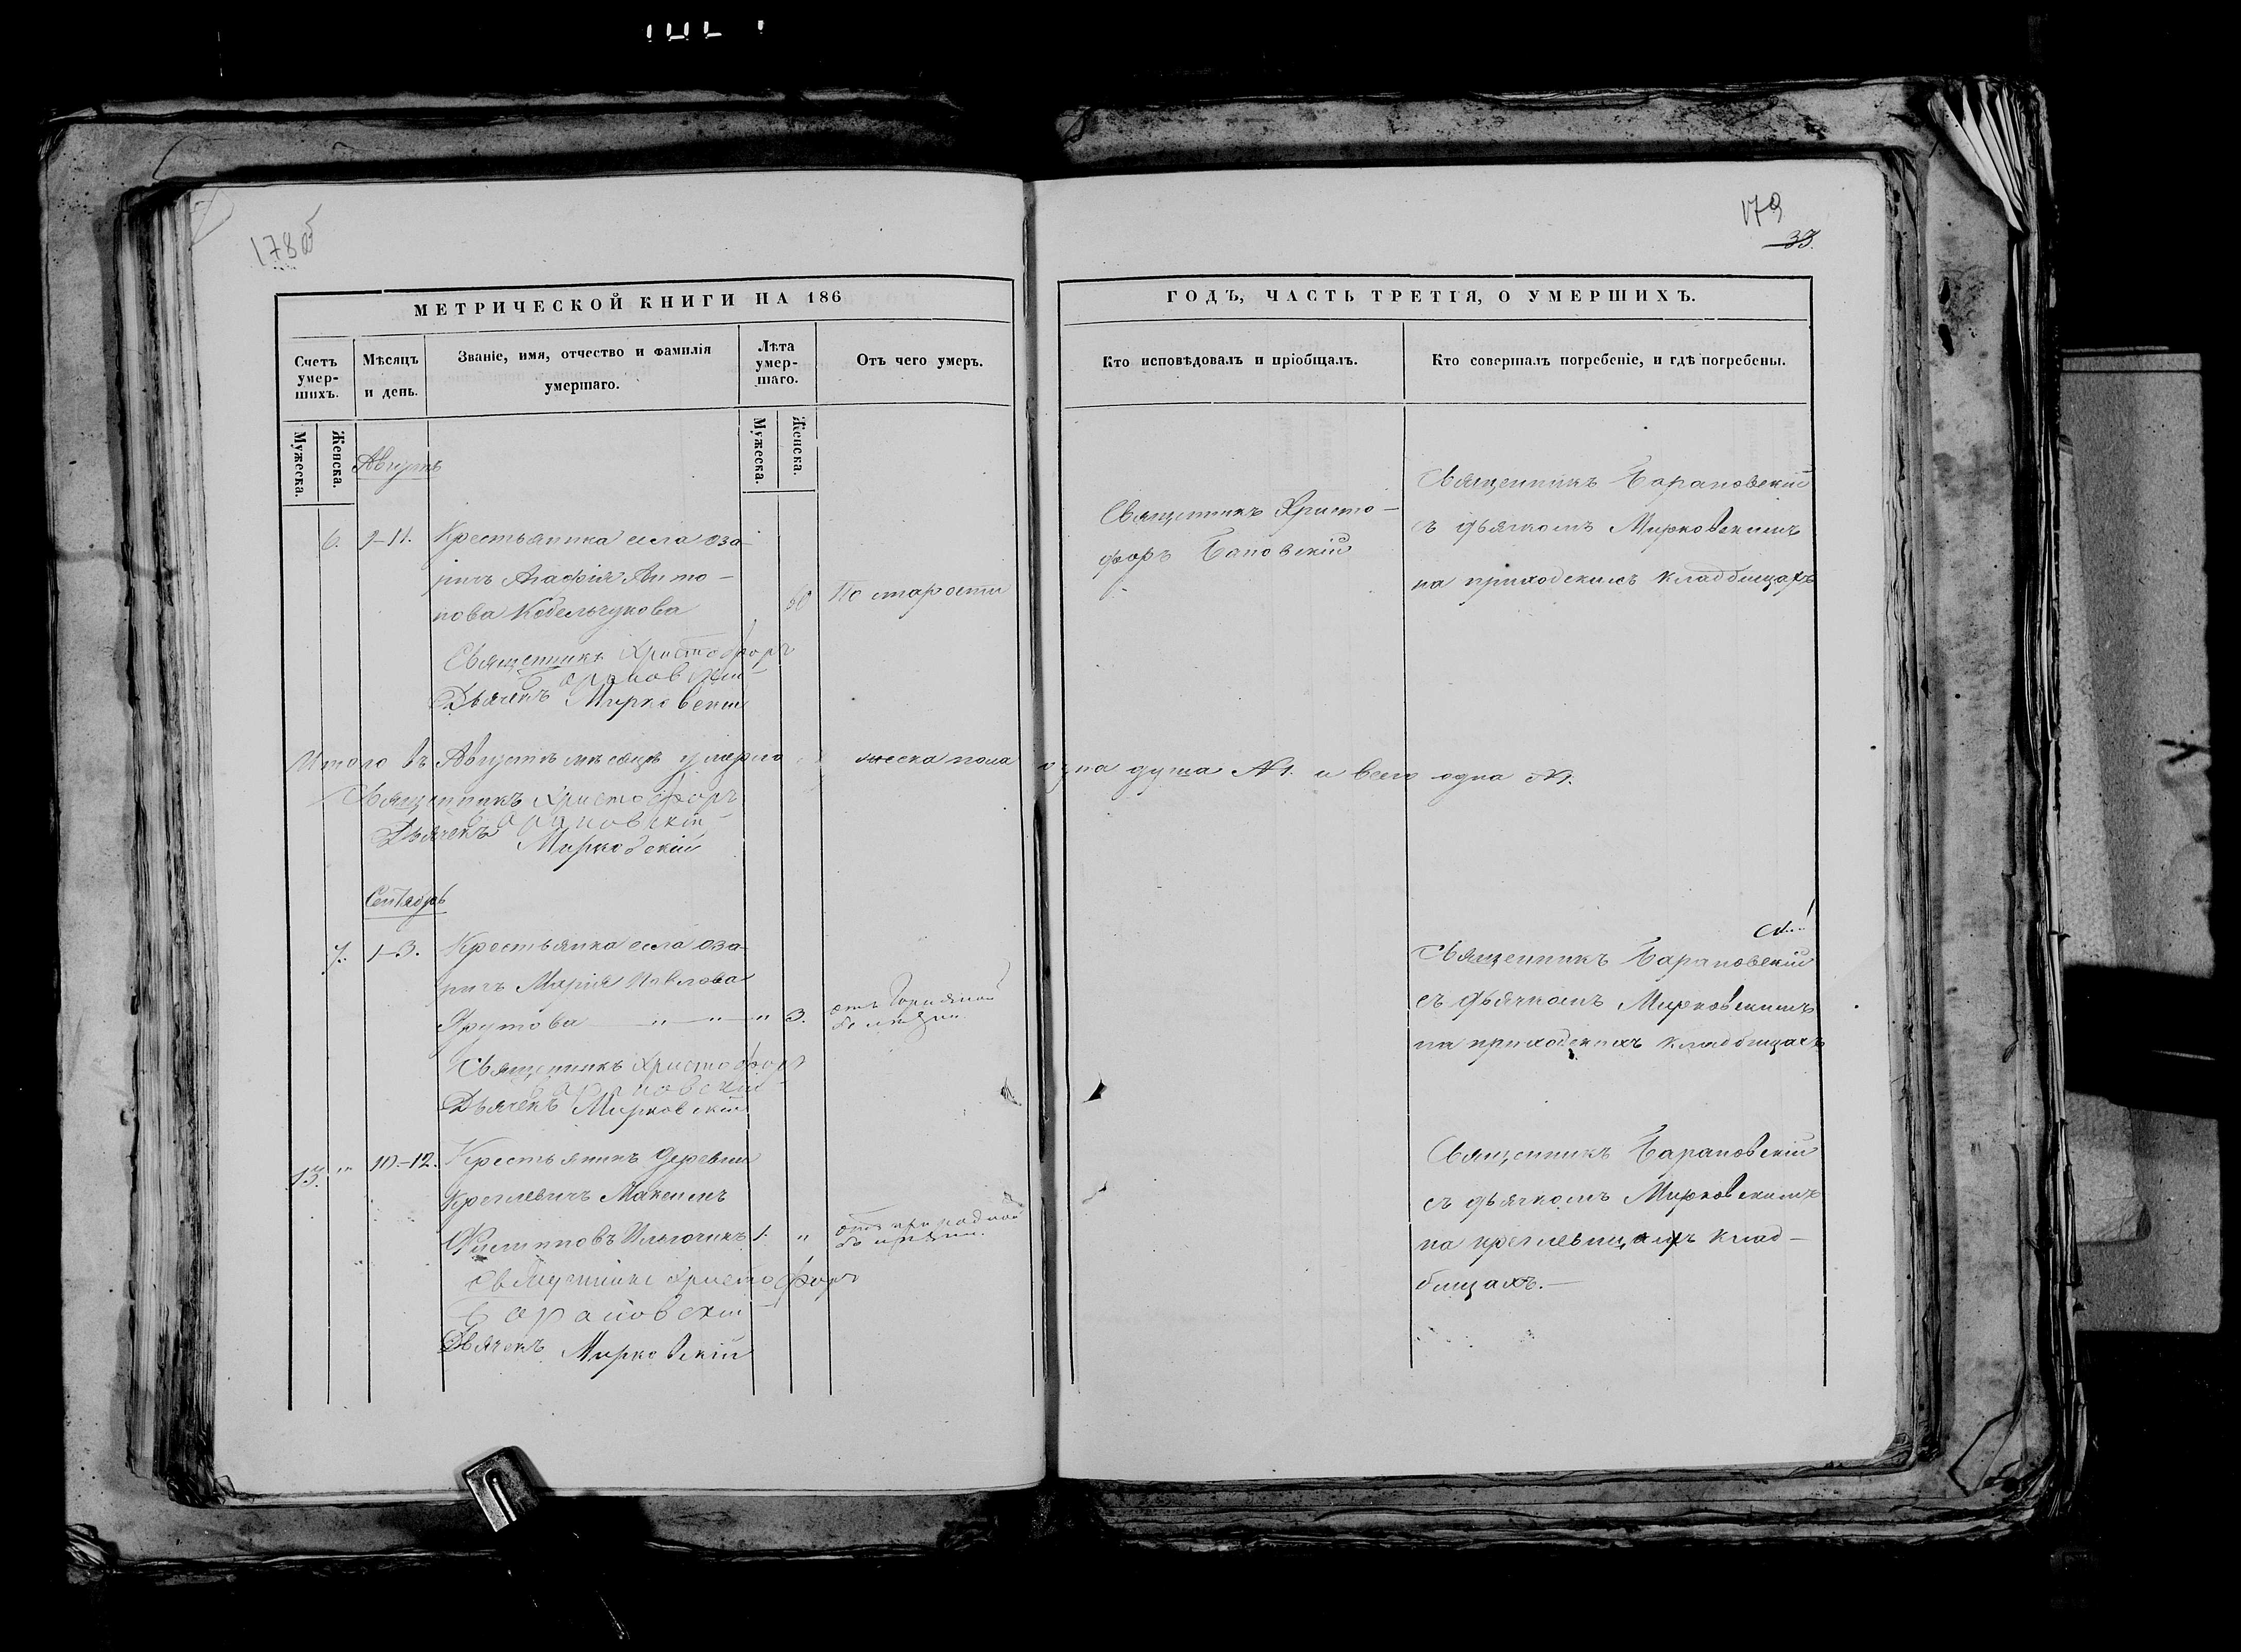 178об
МЕТРИЧЕСКОЙ КНИГИ НА 186
Счетъ умер-шихъ.
Мѣсяцъ и день.
Званіе, имя, отчество и фамилія умершаго.
Лѣта умер-шаго.
Отъ чего умеръ.
Мужеска.
Женска.
Мужеска.
Женска.
Августъ
6. 9-11. Крестьянка села Оза-
ричъ Агафія Анто-
нова Кобельчукова
По старости
Священникъ Христофоръ
Барановскій
Дьячекъ Мирковскій
Итого въ Августѣ мѣсяцѣ умерло
ска пола
Священникъ Христофоръ
Барановскій
Дьячекъ Мирковскій
Сентябрь
7. 1-3. Крестьянка села Оза-
ричъ Марія Павлова
Ярутова " " " 3. отъ
болѣзни
Священникъ Христофоръ
Барановскій
Дьячекъ Мирковскій
13. " 10-12. Крестьянинъ деревни
Максимъ
Филипповъ 1. " отъ природной
болѣзни.
Священникъ Христофоръ
Барановскій
Дьячекъ Мирковскій
179
33.
ГОДЪ, ЧАСТЬ ТРЕТІЯ, О УМЕРШИХЪ.
Кто исповѣдовалъ и пріобщалъ.
Кто совершалъ погребеніе, и гдѣ погребены.
Священникъ Христо-
форъ Бановскій
Священникъ Барановскій
съ дьячкомъ Мирковскимъ
на приходскихъ кладбищахъ
одна душа №1. и всего одна №1.
Священникъ Барановскій
съ дьячкомъ Мирковскимъ
на приходскихъ кладбищахъ
Священникъ Барановскій
съ дьячкомъ Мирковскимъ
на клад-
бищахъ.—